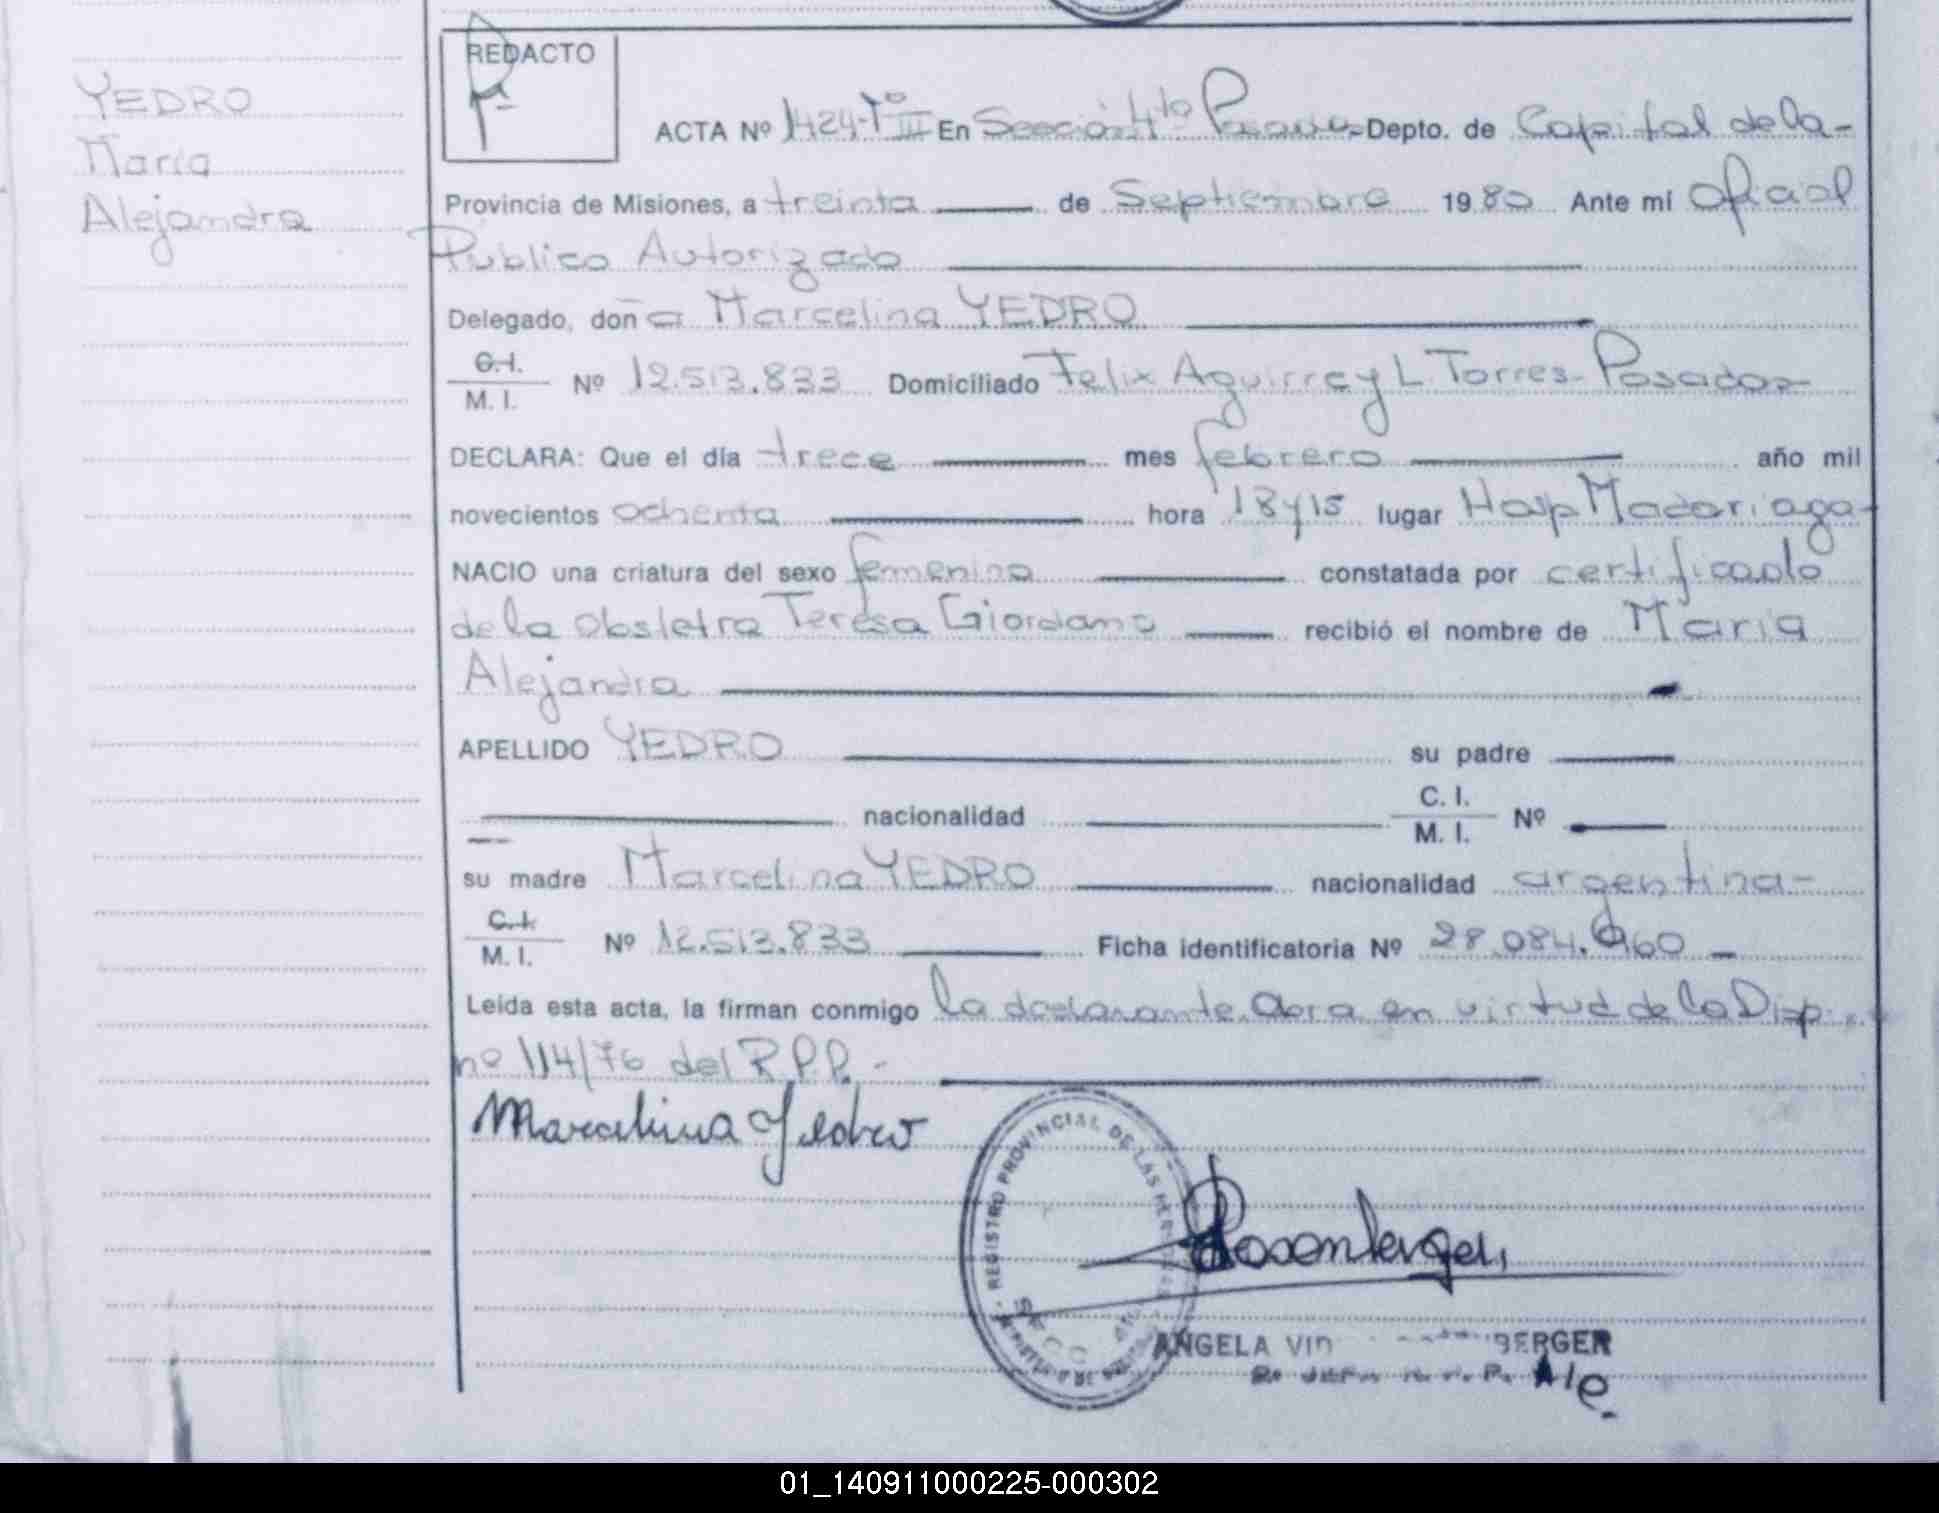 YEDRO
María
Alejandra
REDACTO
ACTA Nº 1424-Tº III En Sección 4ta Posadas- Depto. de Capital de la-
Provincia de Misiones, a treinta de Septiembre 1980 Ante mí Oficial
Público Autorizado
Delegado, doña Marcelina YEDRO
C.I.
M. I. Nº 12.513.833 Domiciliado Felix Aguirre y L. Torres- Posadas-
DECLARA: Que el día trece mes febrero año mil
novecientos ochenta hora 18 y 15 lugar Hosp Madariaga-
NACIO una criatura del sexo femenino constatada por certificado
de la obstetra Teresa Giordano recibió el nombre de María
Alejandra
APELLIDO YEDRO su padre
nacionalidad C. I.
M. I. Nº
su madre Marcelina YEDRO nacionalidad argentina-
C.I.
M. I. Nº 12.513.833 Ficha identificatoria Nº 28.084.960
Leída esta acta, la firman conmigo la declarante. Obra en virtud de la Disp.
nº 114/76 del R.P.P.-
Marcelina Yedro
REGISTRO PROVINCIAL DE LAS
Rosemberger
ANGELA BERGER
A/c.
01_140911000225-000302